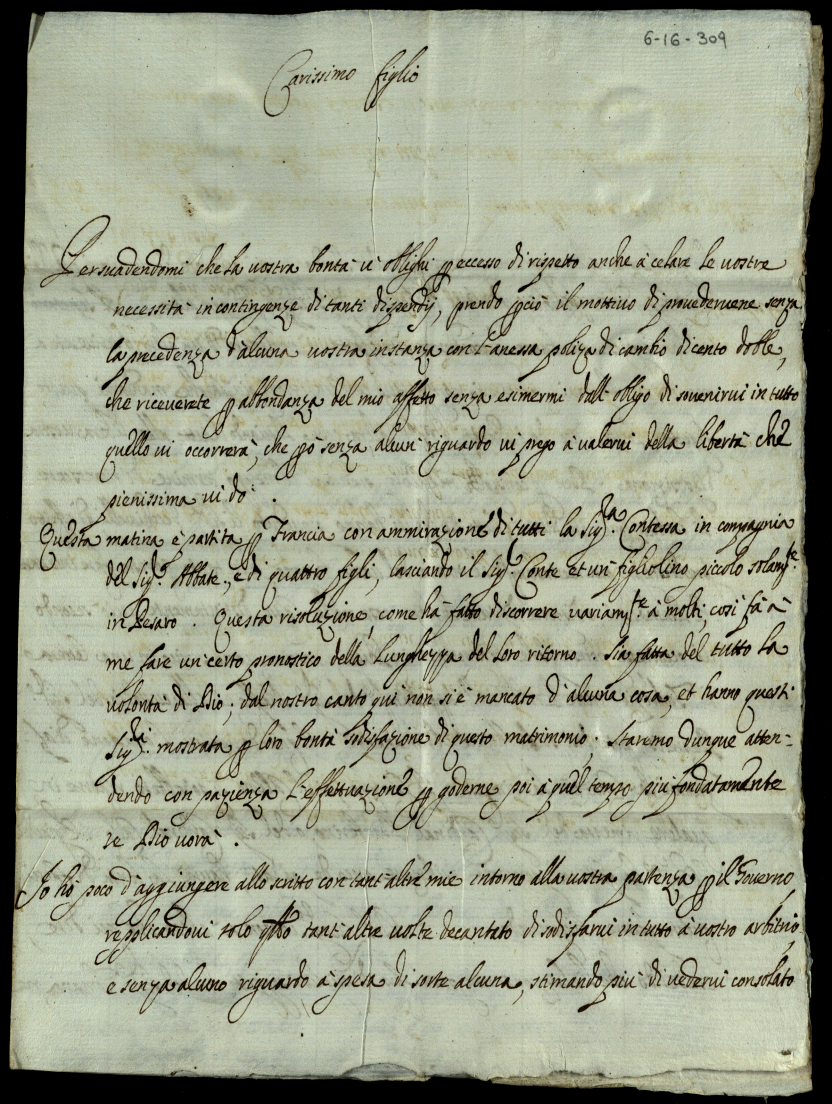 6-16-309
Carissimo figlio
Persuadendomi che la vostra bontà vi oblighi p eccesso di rispetto anche à celare le vostre
necessità in contingenze di tanti dispendij, prendo pciò il mottivo di provedervene senza
la precedenza d'alcuna vostra instanza con l'anessa poliza di cambio di cento doble,
che riceverete p abbondanza del mio affetto senza esimermi dall'obligo di sovenirvi in tutto
quello vi occorrerà, che pò senza alcun riguardo vi prego à valervi della libertà che
pienissima vi do.
Questa matina è partita p Francia con ammirazione di tutti la Sig.ra Contessa in compagnia
del Sig.r Abbate, e di quattro figli, lasciando il Sig.r Conte et un figliolino piccolo solam.te
in Pesaro. Questa risoluzione, come hà fatto discorrere variam.te à molti, così fà à
me fare un certo pronostico della lunghezza del loro ritorno. Sia fatta del tutto la
volontà di Dio; dal nostro canto quì non si è mancato d'alcuna cosa, et hanno questi
Sig.ri mostrata p loro bontà sodisfazione di questo matrimonio. Staremo dunque atten-
dendo con pazienza l'effettuazione p goderne poi à quel tempo più fondatamente
se Dio vorà.
Io hò poco d'aggiungere allo scritto con tant'altre mie intorno alla vostra partenza p il Governo,
replicandovi solo qllo tant'altre volte decantato di sodisfarvi in tutto à vostro arbitrio,
e senza alcuno riguardo à spesa di sorte alcuna, stimando più di vedervi consolato